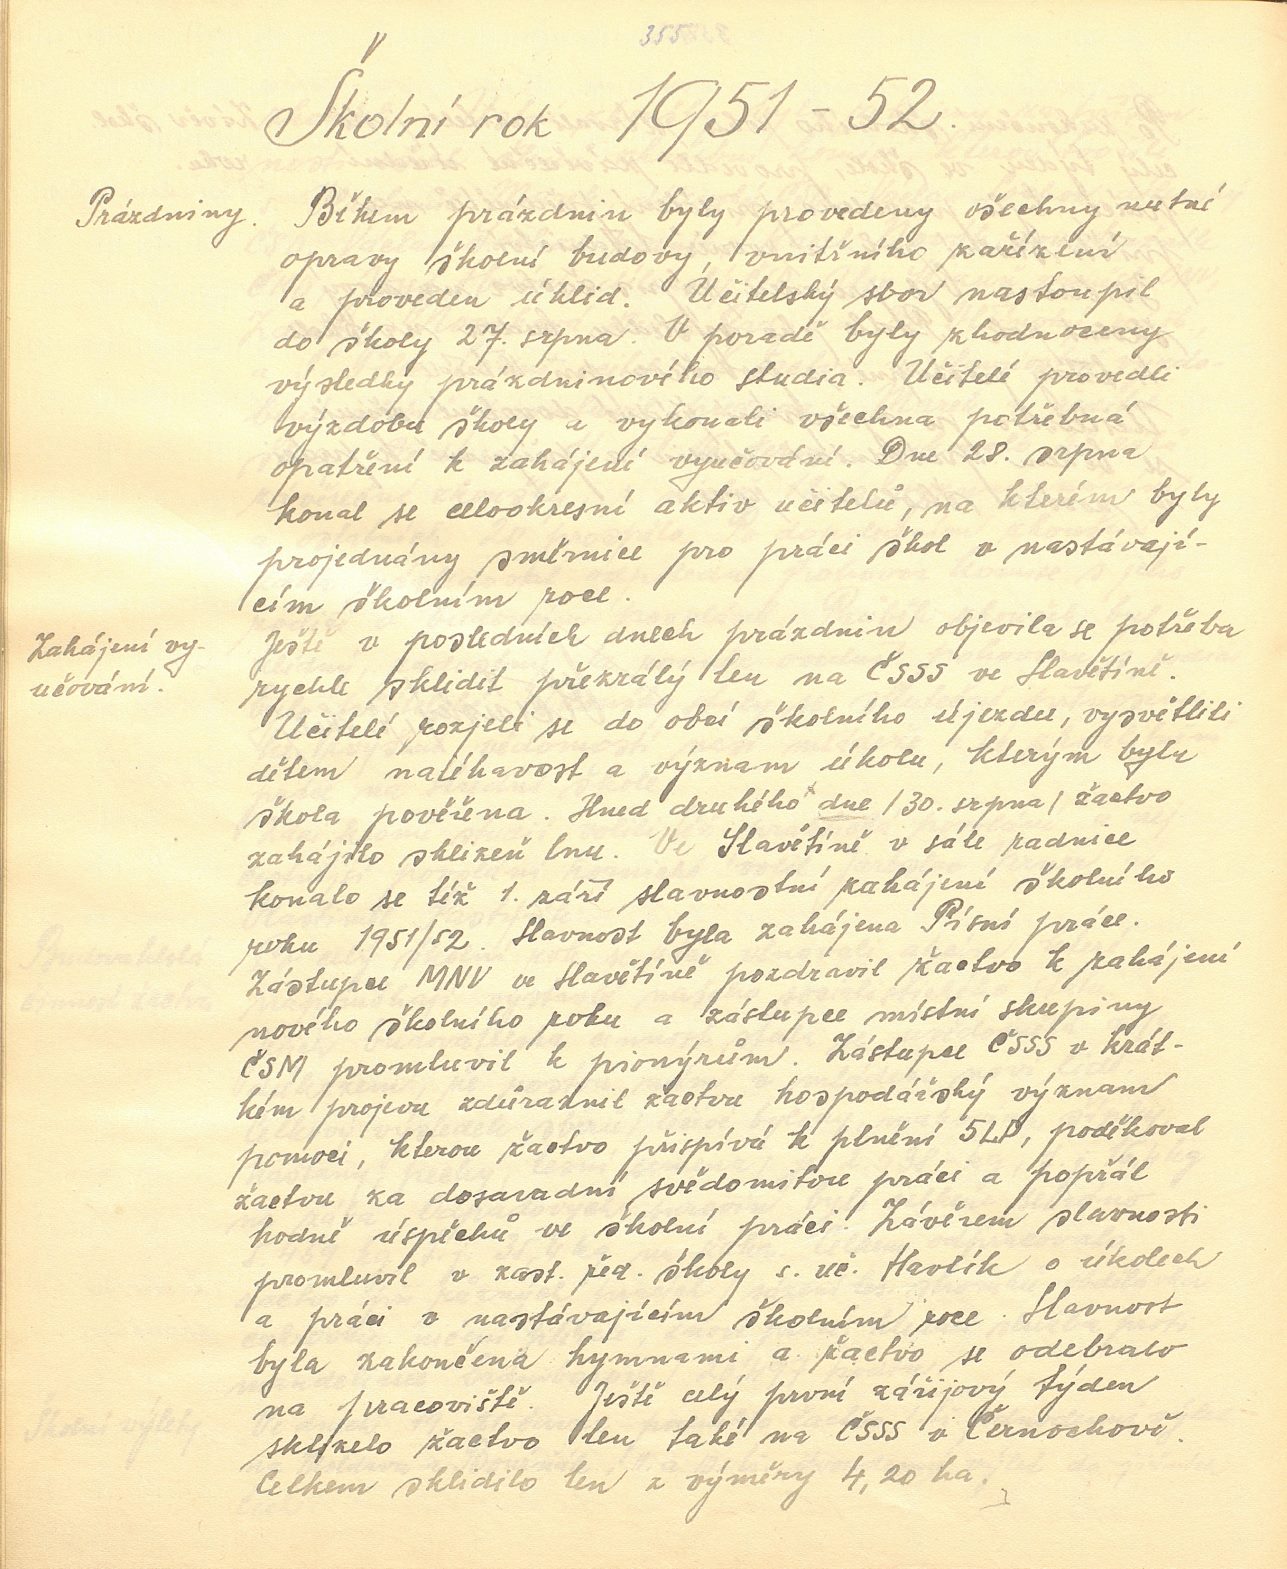 355
Školní rok 1951 - 52.
Prázdniny. Během prázdnin byly provedeny všechny nutné
opravy školní budovy, vnitřního zařízení
a proveden úklid. Učitelský sbor nastoupil
do školy 27. srpna. V poradě byly zhodnoceny
výsledky prázdninového studia. Učitelé provedli
výzdobu školy a vykonali všechna potřebná
opatření k zahájení vyučování. Dne 28. srpna
konal se celookresní aktiv učitelů, na kterém byly
projednány směrnice pro práci škol v nastávají-
cím školním roce.
Zahájení vy-
učování.
Ještě v posledních dnech prázdnin objevila se potřeba
rychle sklidit přezrálý len na ČSSS ve Slavětíně.
Učitelé rozjeli se do obcí školního újezdu, vysvětlili
dětem naléhavost a význam úkolu, kterým byla
škola pověřena. Hned druhého dne /30. srpna/ žactvo
zahájilo sklizeň lnu. Ve Slavětíně v sále radnice
konalo se též 1. září slavnostní zahájení školního
roku 1951/52. Slavnost byla zahájena Písní práce.
Zástupce MNV ve Slavětíně pozdravil žactvo k zahájení
nového školního roku a zástupce místní skupiny
ČSM promluvil k pionýrům. Zástupce ČSSS v krát-
kém projevu zdůraznil žactvu hospodářský význam
pomoci, kterou žactvo přispívá k plnění 5LP, poděkoval
žactvu za dosavadní svědomitou práci a popřál
hodně úspěchů ve školní práci. Závěrem slavnosti
promluvil v zast. řed. školy s. uč. Havlík o úkolech
a práci v nastávajícím školním roce. Slavnost
byla zakončena hymnami a žactvo se odebralo
na pracoviště. Ještě celý první zářijový týden
sklízelo žactvo len také na ČSSS v Černochově.
Celkem sklidilo len z výměry 4,20 ha.